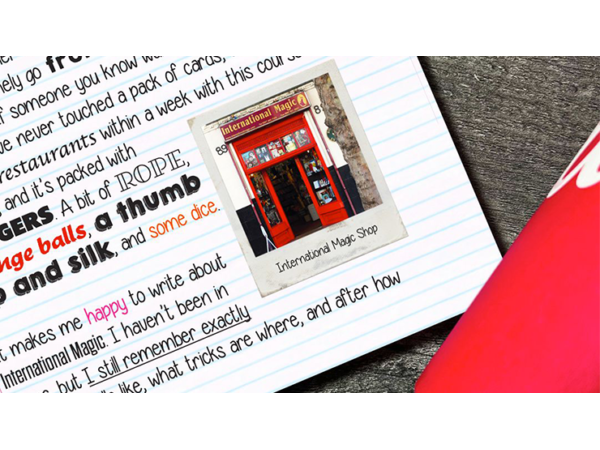 go
someone you know
never touched a pack of cards,
restaurants within a week with this
and it's packed with
GERS. A bit of ROPE,
nge balls, a thumb
and silk, and some dice.
International Magic
International Magic Shop
makes me happy to write about
International Magic. I haven't been in
but I still remember exactly
like, what tricks are where, and after how